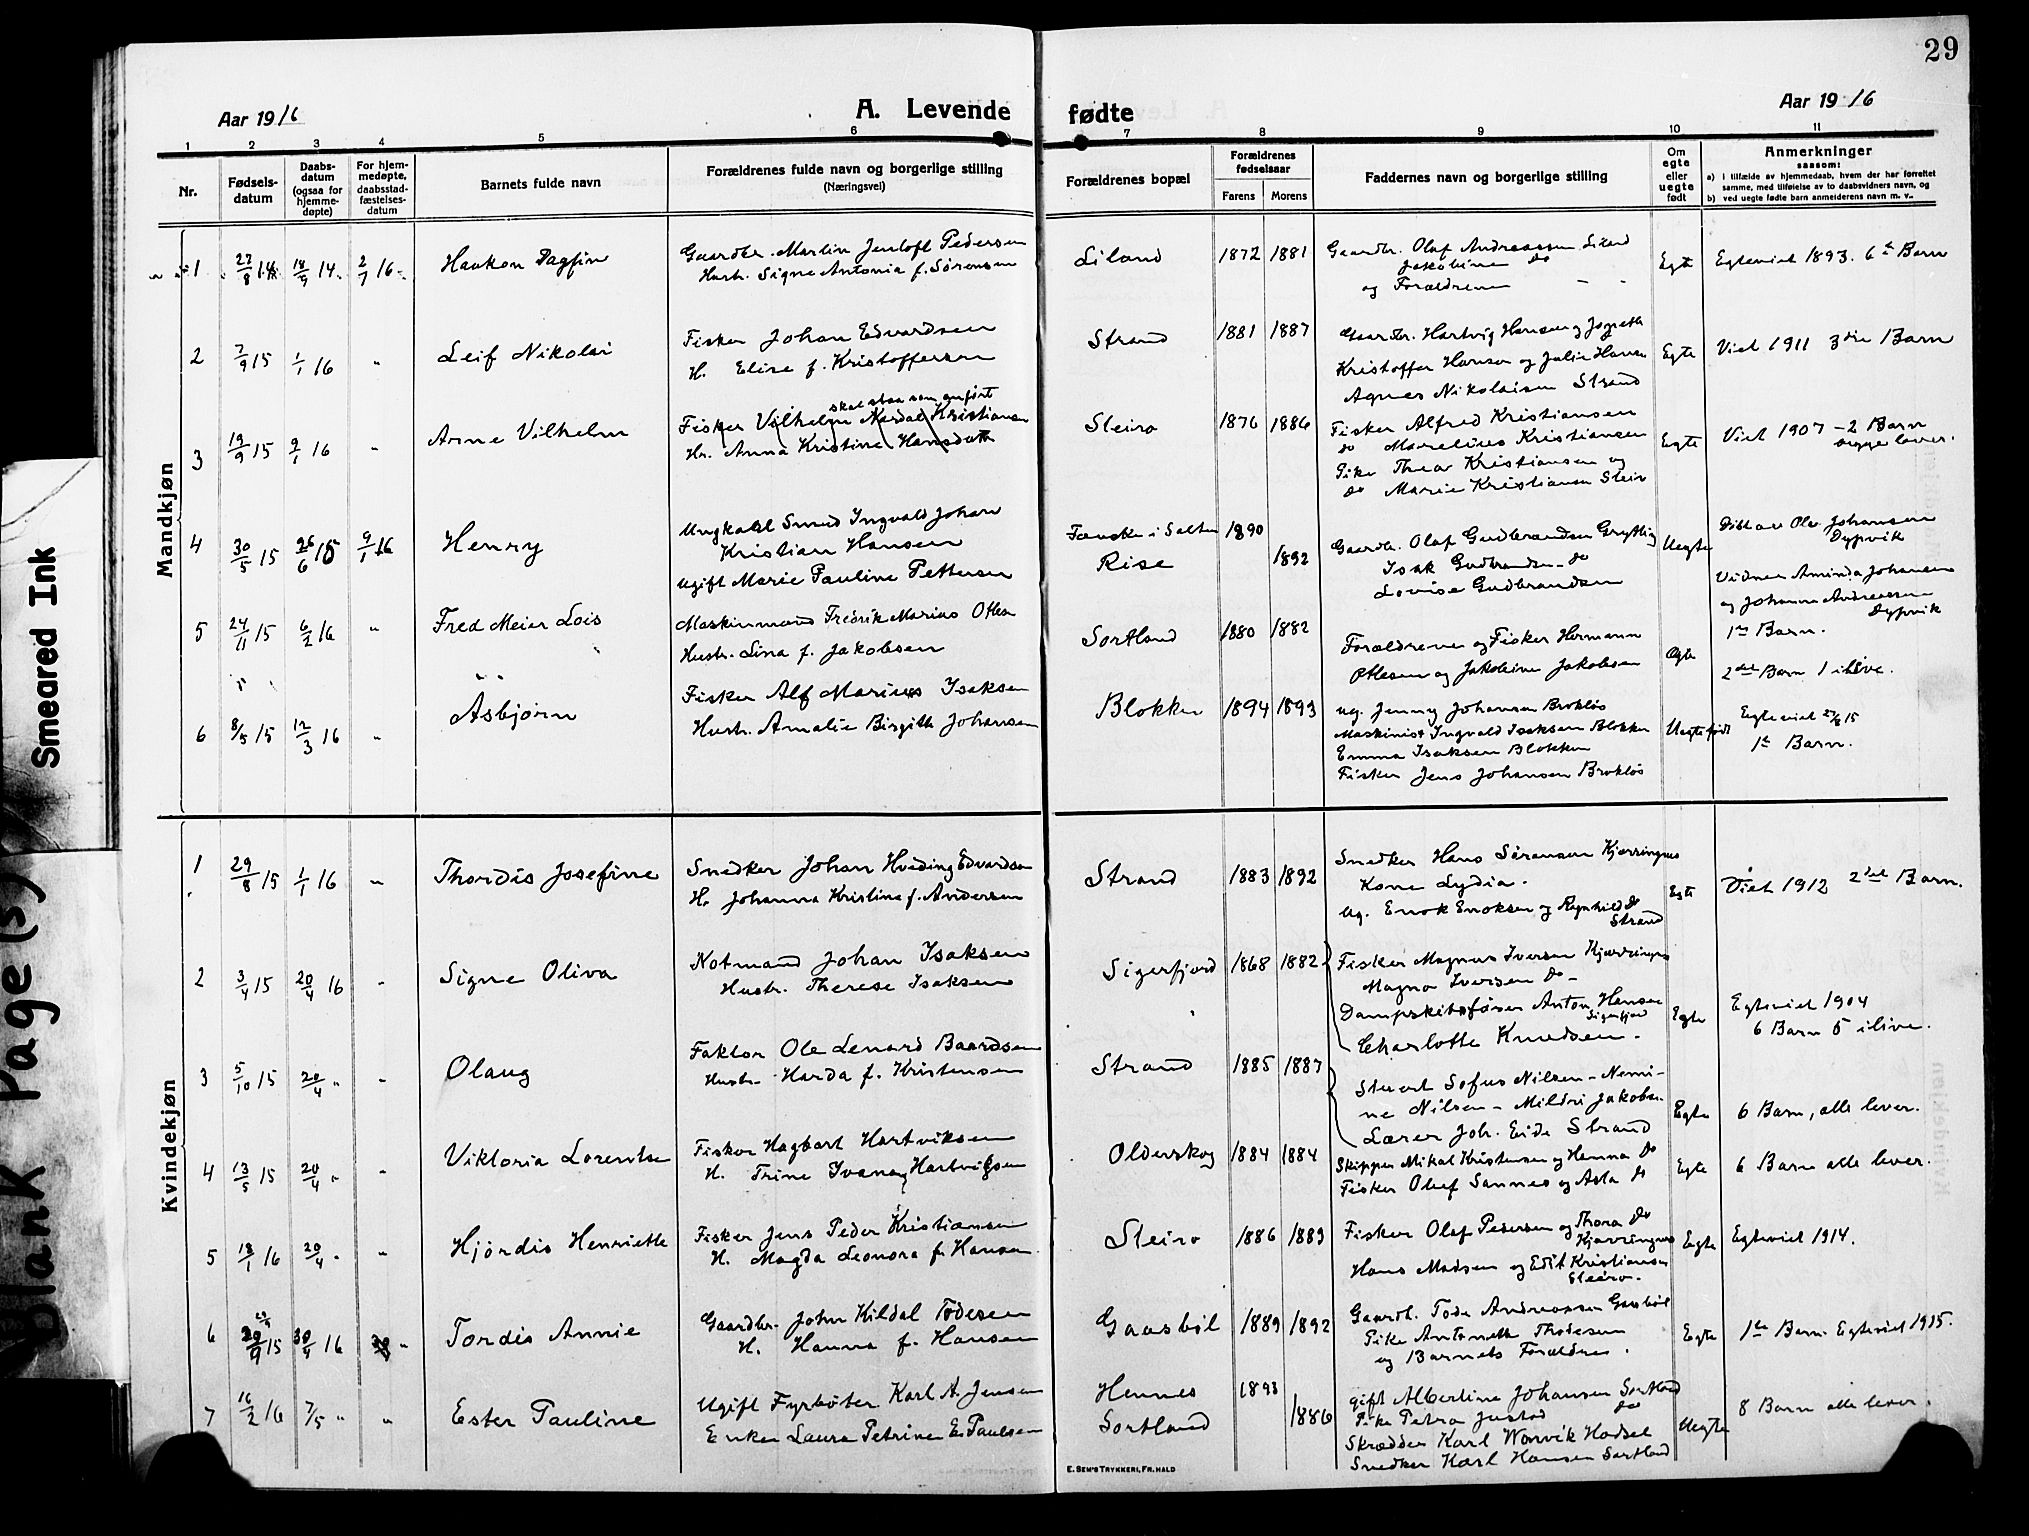 29
Aar 1916
A. Levende fødte
Aar 1916
1 2 3 4 5 6 7 8 9 10 11
Nr.
Fødsels-
datum
Daabs-
datum
(ogsaa for
hjemme-
døpte)
For hjem-
medøpte,
daabsstad-
fæstelses-
datum
Barnets fulde navn
Forældrenes fulde navn og borgerlige stilling
(Næringsvei)
Forældrenes bopæl
Forældrenes
fødselsaar
Farens Morens
Faddernes navn og borgerlige stilling
Om
egte
eller
uegte
født
Anmerkninger
saasom:
a) i tilfælde av hjemmedaab, hvem der har forrettet
samme, med tilføielse av to daabsvidners navn, og
b) ved uegte fødte barn anmelderens navn m. v.
Mandkjøn
1 27/8 14 18/9 14 2/7 16 Haakon Dagfin
Gaardbr. Martin Jentoft Pedersen
Hustr. Signe Antonia f. Sørensen
Liland 1872 1881
Gaardbr. Olaf Andreassen Liland
Jakobine do
og Forældrene
Egte
Egteviet 1893. 6te Barn
2 7/9 15 1/1 16 " Leif Nikolai
Fisker Johan Edvardsen
H. Elise f. Kristoffersen
Strand 1881 1887
Gaardbr. Hartvig Hansen og
Kristoffer Hansen og Julie Hansen
Agnes Nikolaisen Strand
Egte
Viet 1911 3die Barn
3 19/9 15 9/1 16 " Arne Vilhelm
skal staa som anført
Fisker Vilhelm Nordal Kristiansen
Hr. Anna Kristine Hansdatt
Sleiro 1876 1886
Fisker Alfred Kristiansen
do Marelius Kristiansen
Pike Thea Kristiansen og
do Marie Kristiansen Sleiro
Egte
Viet 1907 - 2 Barn
begge lever.
4 30/5 15 26/6 15 9/1 16 Henry
Ungkarl Smed Ingvald Johan
Kristian Hansen
Ugift Marie Pauline Pettersen
Fauske i Salten 1890
Rise 1892
Gaardbr. Olaf Gudbrandsen
Isak Gudbrandsen do
Lovise Gudbrandsen
Uegte
Ole Johansen
Dypvik
Vidner Aminda Johansen
og Johanna Andreassen
Dypvik
1te Barn.
5 24/11 15 6/2 16 " Fred Meier Lois
Maskinmand Fredrik Marius Olsen
Hustr. Lina f. Jakobsen
Sortland 1880 1882
Forældrene og Fisker Hermann
Ottesen og Jakobine Jakobsen
Egte
2det Barn 1 ilive.
6 8/5 15 12/3 16 " Asbjørn
Fisker Alf Marius Isaksen
Hustr. Amalie Birgith Johansen
Blokken 1894 1893
ug. Jenny Johansen Brokløs
Maskinist Ingvald Isaksen Blokken
Emma Isaksen Blokken
Fisker Jens Johansen Brokløs
Uegte født
Egteviet 27/6 15
1te Barn.
Kvindekjøn
1 29/8 15 1/1 16 " Thordis Josefine
Snedker Johan Hveding Edvardsen
H. Johanna Kristine f. Andersen
Strand 1883 1892
Snedker Hans Sørensen Kjerringnes
Kone Lydia.
Ug. Enok Enoksen og Ragnhild do
Strand
Egte
Viet 1912 2det Barn.
2 3/4 15 20/4 16 " Signe Oliva
Notmand Johan Isaksen
Hustr. Therese Isaksen
Sigerfjord 1868 1882
Fisker Magnus Iversen Kjerringnes
Magna Iversen do
Dampskibsfører Anton Hansen
Sigerfjord
Charlotte Knudsen.
Egte
Egteviet 1904
6 Barn 5 ilive.
3 5/10 15 20/4 " " Olaug
Faktor Ole Lenard Baardsen
Hustr. Harda f. Kristensen
Strand 1885 1887
Stuert Sofus Nilsen - Nemi-
ne Nilsen - Mildri Jakobsen
Lærer Joh. Eide Strand
Egte
6 Barn, alle lever.
4 13/5 15 20/4 " " Viktoria Lorentse
Fisker Hagbart Hartviksen
H. Trine Ivanay Hartvigsen
Olderskog 1884 1884
Skipper Mikal Kristensen og Hanna do
Fisker Oluf Sannes og Asta do
Egte
6 Barn alle lever.
5 18/1 16 20/4 " " Hjørdis Henriette
Fisker Jens Peder Kristiansen
H. Magda Leonora f. Hansen
Sleiro 1886 1889
Fisker Olaf Pedersen og Thora do
Kjerringnes
Hans Madsen og Edit Kristiansen
Sleiro.
Egte
Egteviet 1914.
6 29/9 15 30/4 16 " Tordis Annie
Gaardbr. John Kildal Todesen
H. Hanna f. Hansen
Gaasbøl 1889 1892
Gaardb. Tode Andreassen Gaasbøl
Pike Antonette Thodesen
og Barnets Forældre.
Egte
1te Barn. Egteviet 1915.
7 16/2 16 7/5 " " Ester Pauline
Ugift Fyrbøter Karl A. Jensen
Enken Laura Petrine E. Paulsen
Hennes 1893
Sortland 1886
Gift Albertine Johansen Sortland
Pike Petra Justad do
Skrædder Karl Warvik Hadsel
Snedker Karl Hansen Sortland
Uegte
8 Barn alle lever.
E. SEM'S TRYKKERI, FR.HALD
Smeared Ink
Blank Page(s)